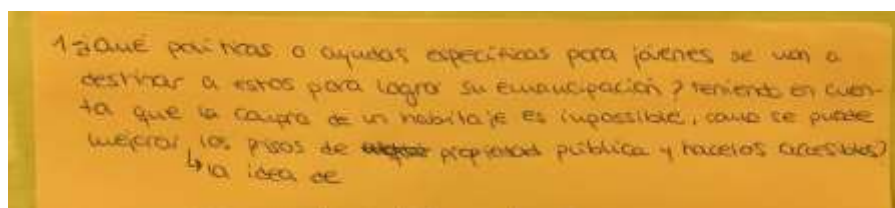 1 ¿Qué políticas o ayudas específicas para jóvenes se van a
destinar a estos para lograr su emancipación? teniendo en cuen-
ta que la compra de un habitaje es impossible, como se puede
mejorar los pisos de propiedad pública y hacelos accesibles?
↳ la idea de